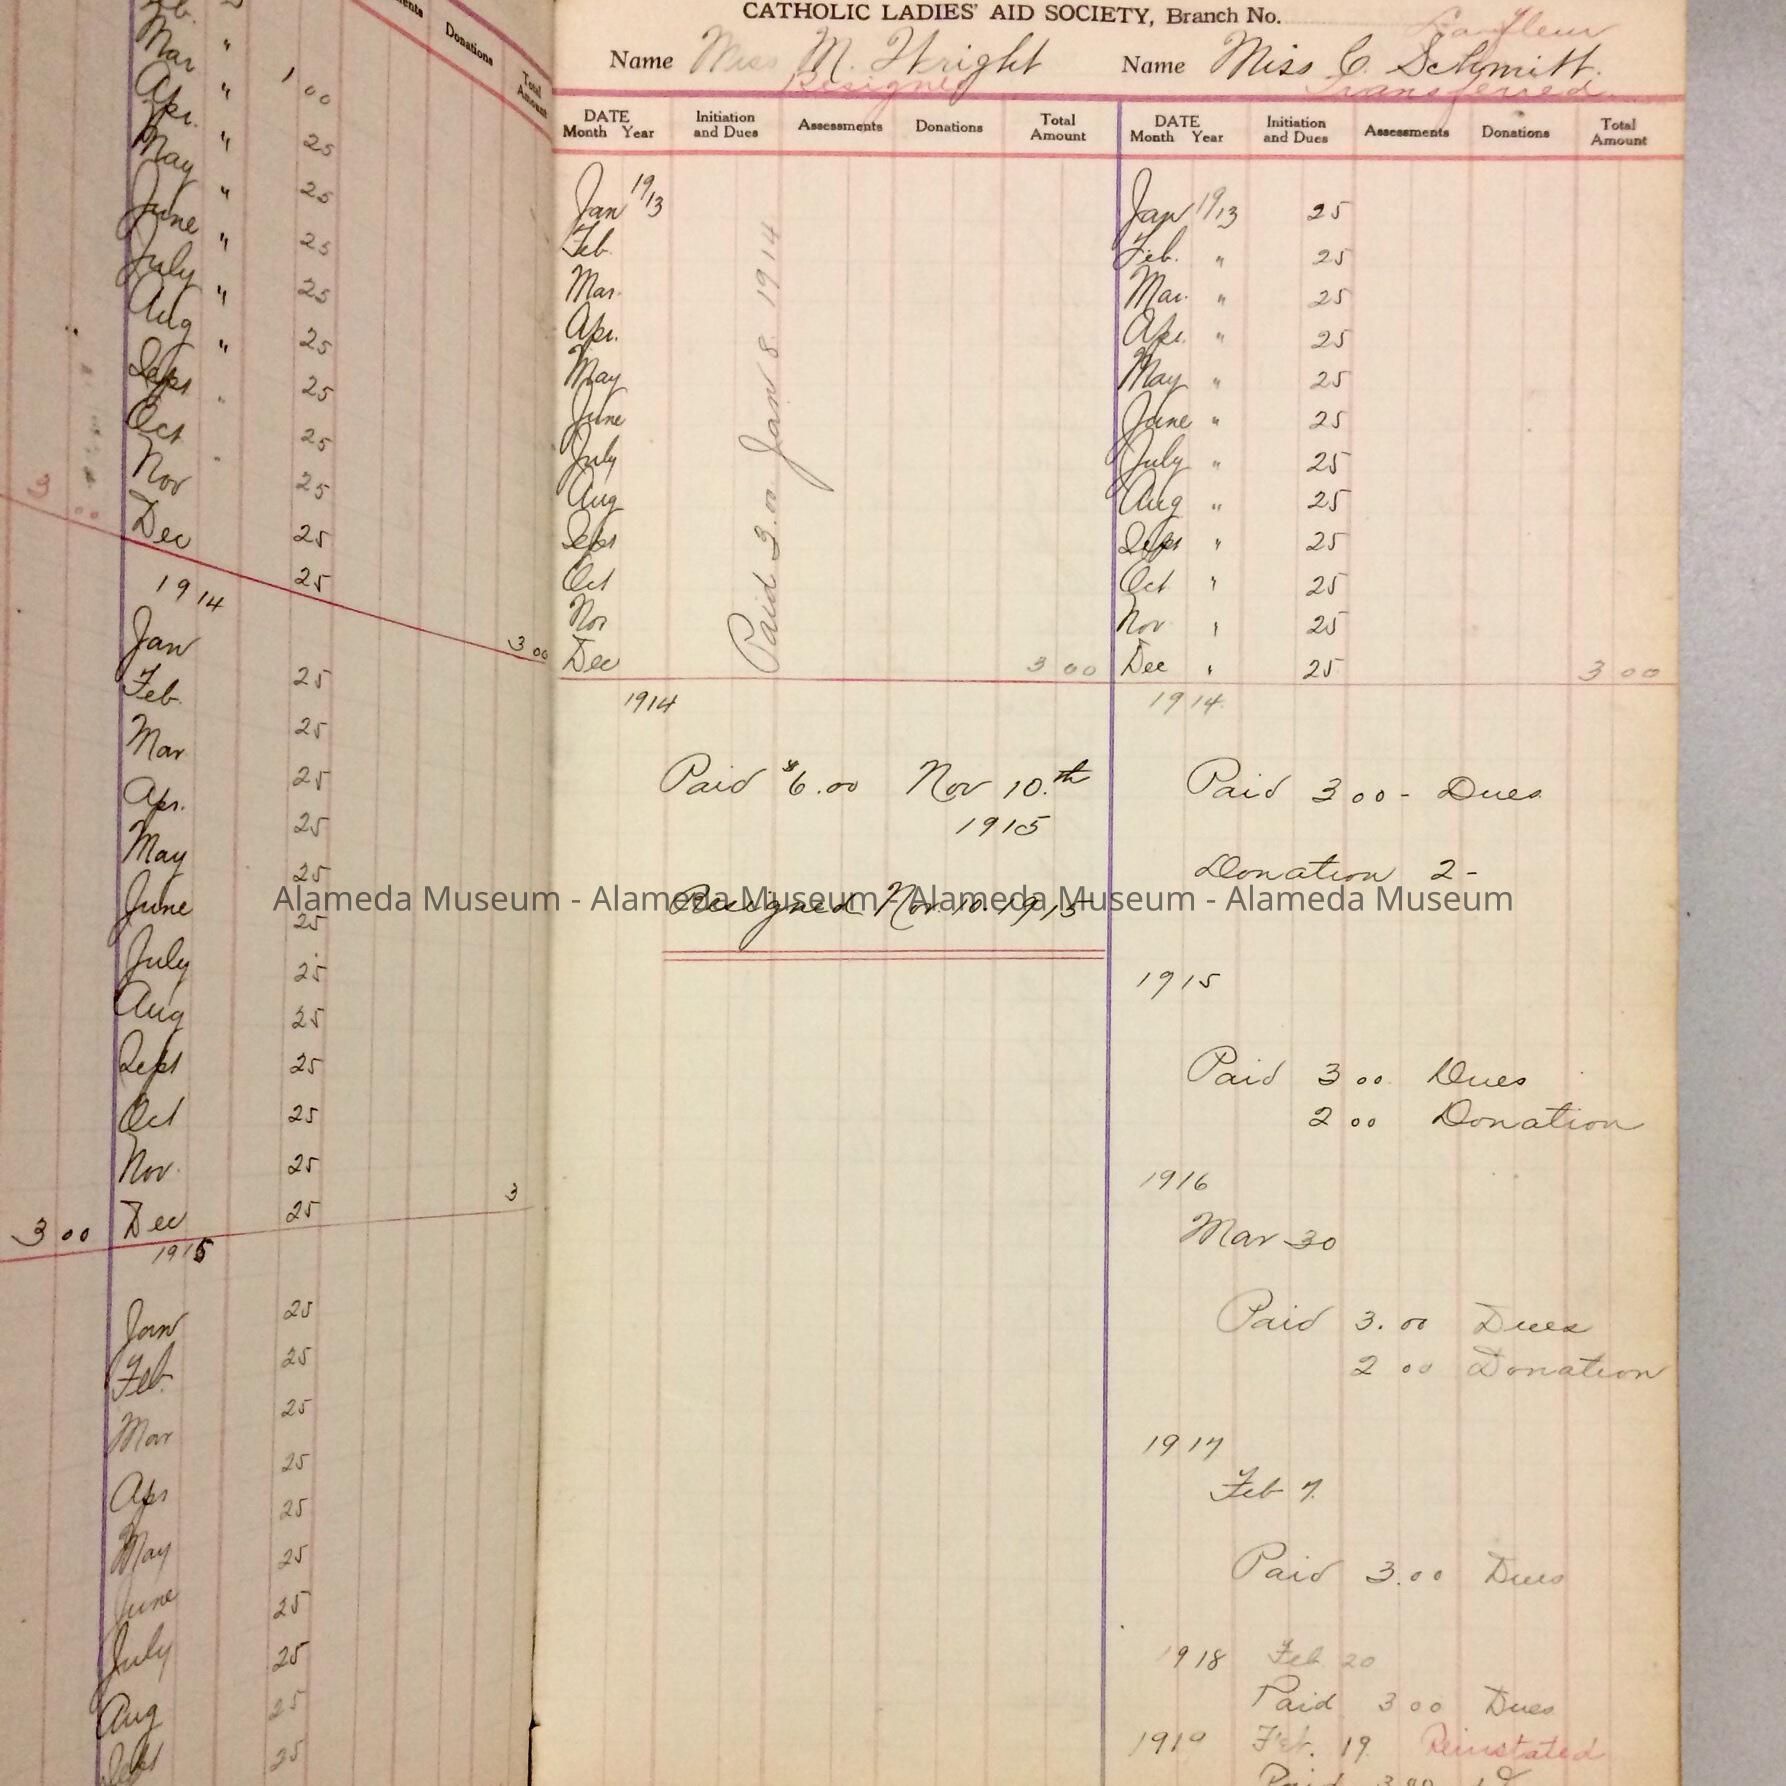 Donations
Total
Amount
Mar "
Apr. " 1 00
May " 25
June " 25
July " 25
Aug " 25
Sept " 25
Oct 25
Nov 25
Dec 25
3 00
25
1914
3 00
Jan
Feb. 25
Mar 25
Apr. 25
May 25
June 25
25
July 25
Aug 25
Sept 25
Oct 25
Nov. 25
Dec 25 3
3 00
1915
Jan 25
Feb. 25
Mar 25
Apr 25
May 25
June 25
July 25
Aug 25
Sept 25
CATHOLIC LADIES' AID SOCIETY, Branch No.
Name Miss M. Wright
Resigned
DATE
Month Year
Initiation
and Dues
Assessments
Donations
Total
Amount
Jan 19/13
Feb.
Mar.
Apr.
May
June
July
Aug
Sept
Oct
Nov
Dec 3 00
Paid 3.00 Jan 8. 1914
1914
Paid $6.00 Nov 10.th
1915
Resigned Nov. 10. 1915
Name Miss C. Schmitt.
Transferred.
DATE
Month Year
Initiation
and Dues
Assessments
Donations
Total
Amount
Jan 19/13 25
Feb. " 25
Mar. " 25
Apr. " 25
May " 25
June " 25
July " 25
Aug " 25
Sept " 25
Oct " 25
Nov " 25
Dec " 25 3 00
1914.
Paid 3 00 - Dues
Donation 2 -
1915
Paid 3 00 Dues
2 00 Donation
1916
Mar 30
Paid 3.00 Dues
2 00 Donation
1917
Feb 7.
Paid 3.00 Dues
1918 Feb. 20
Paid 3 00 Dues
1919 Feb. 19. Reinstated
Paid 3.00
Alameda Museum - Alameda Museum - Alameda Museum - Alameda Museum